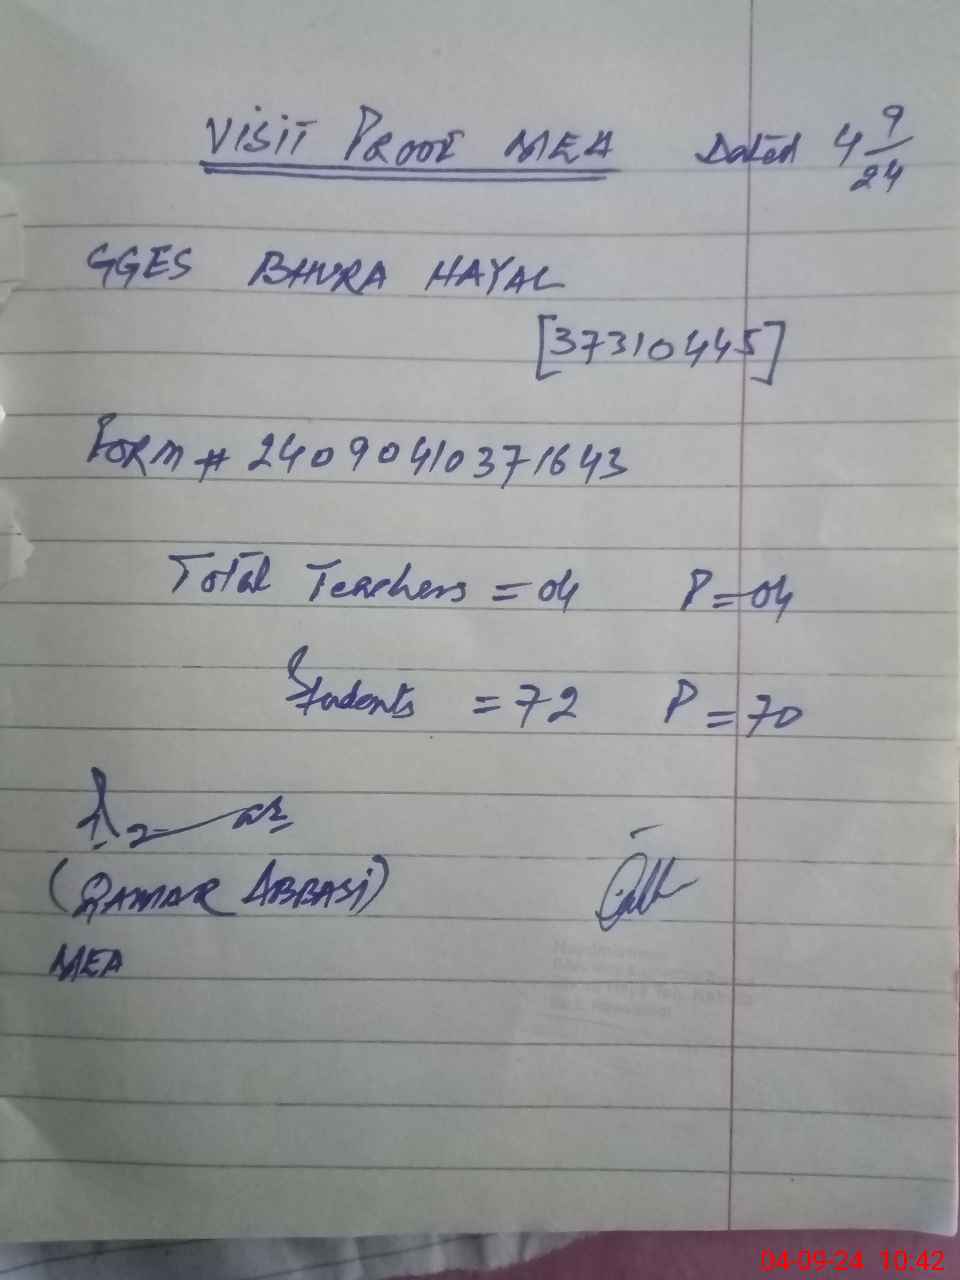 VISIT PROOF MEA Dated 4 9/24
GGES BHURA HAYAL
[37310445]
FORM # 24090410371643
Total Teachers = 04 P = 04
Students = 72 P = 70
(QAMAR ABBASI)
MEA
04-09-24 10:42